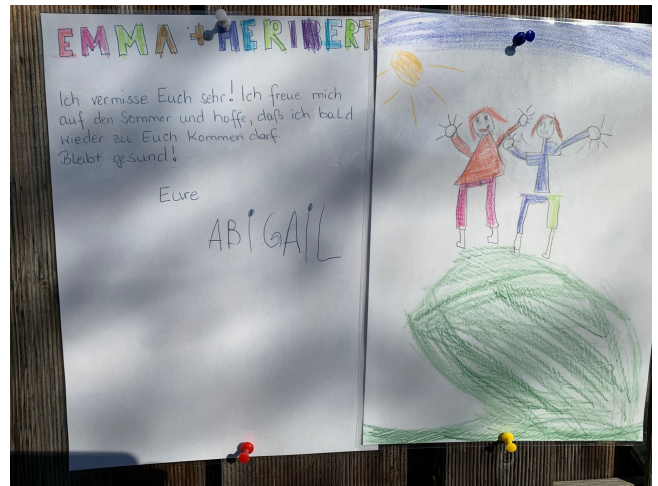 EMMA + HERIBERT
Ich vermisse Euch sehr! Ich freue mich
auf den Sommer und hoffe, daß ich bald
wieder zu Euch kommen darf
Bleibt gesund!
Eure
ABIGAIL